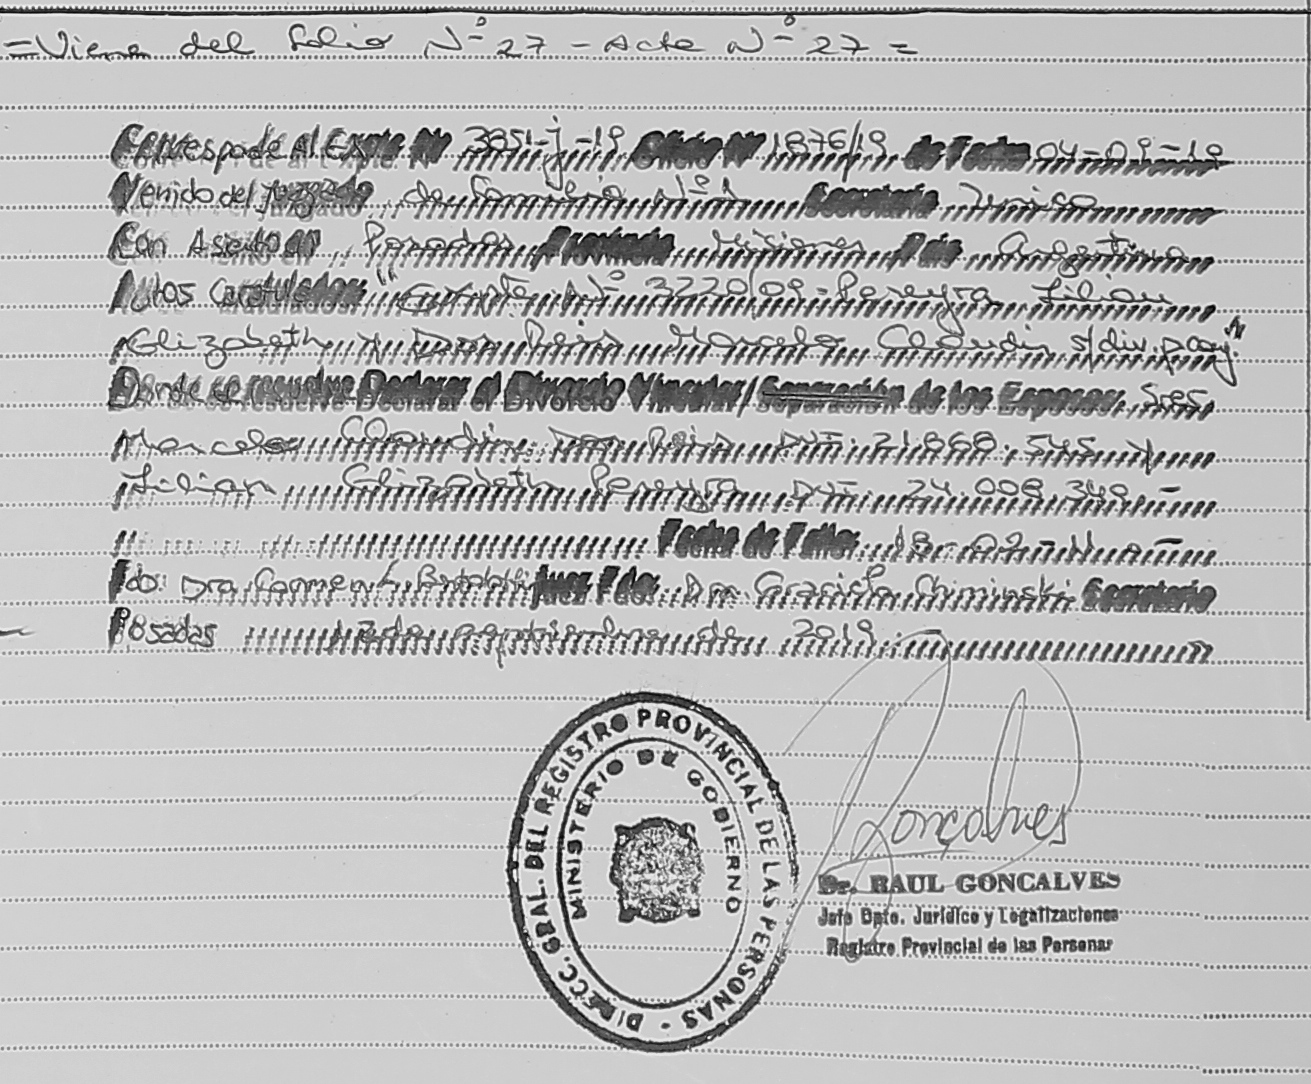 = Viene del folio Nº 27 - Acta Nº 27 =
Correspode Al Expte Nº 3851-J-19 Oficio Nº 1876/19 de Fecha 04-09-19
Venido del Juzgado de Familia Nº 1 Secretaria Unica
Con Asieto en Posadas Provincia Misiones Pais Argentina
Autos Caratulados "Expte Nº 3220/09 - Pereyra Lilian
Elizabeth y Marcelo Claudio s/div. p. conj."
Donde se resuelve Declarar el Divorcio Vincular/Separación de los Esposos Sres
Marcelo Claudio DNI 21.868.545 y
Lilian Elizabeth Pereyra DNI 24.008.349.-
Fecha de Fallo 18-02-11.-
Fdo: Dra Carmen Juez Fdo. Dra. Graciela Secretario
Posadas 17 de septiembre de 2019.
DIRECC. GRAL. DEL REGISTRO PROVINCIAL DE LAS PERSONAS -
MINISTERIO DE GOBIERNO
Goncalves
Dr. RAUL GONCALVES
Jefe Dpto. Jurídico y Legalizaciones
Registro Provincial de las Personas